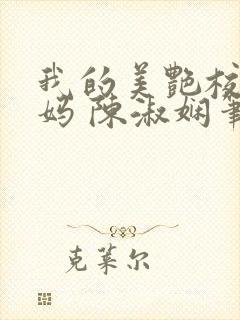 我的美艷校
妈陈淑娴筆
克莱尔